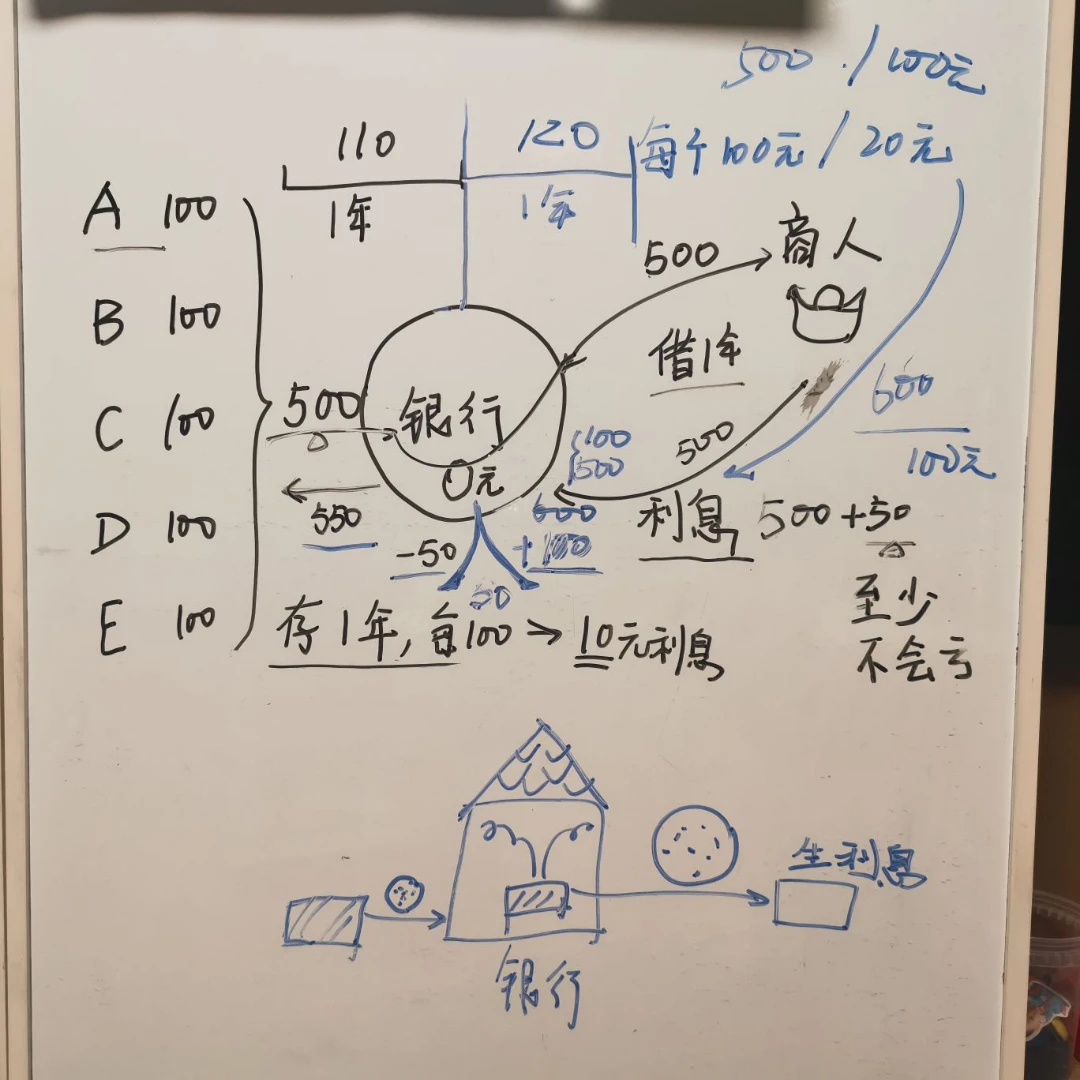 500 / 100元
110
120
每个100元 / 20元
1年
1年
A 100
B 100
C 100
D 100
E 100
500
商人
借1年
500
银行
0元
600
100元
500
100
500
600
550
-50
+100
50
利息 500+50
至少
不会亏
存1年,每100→10元利息
生利息
银行